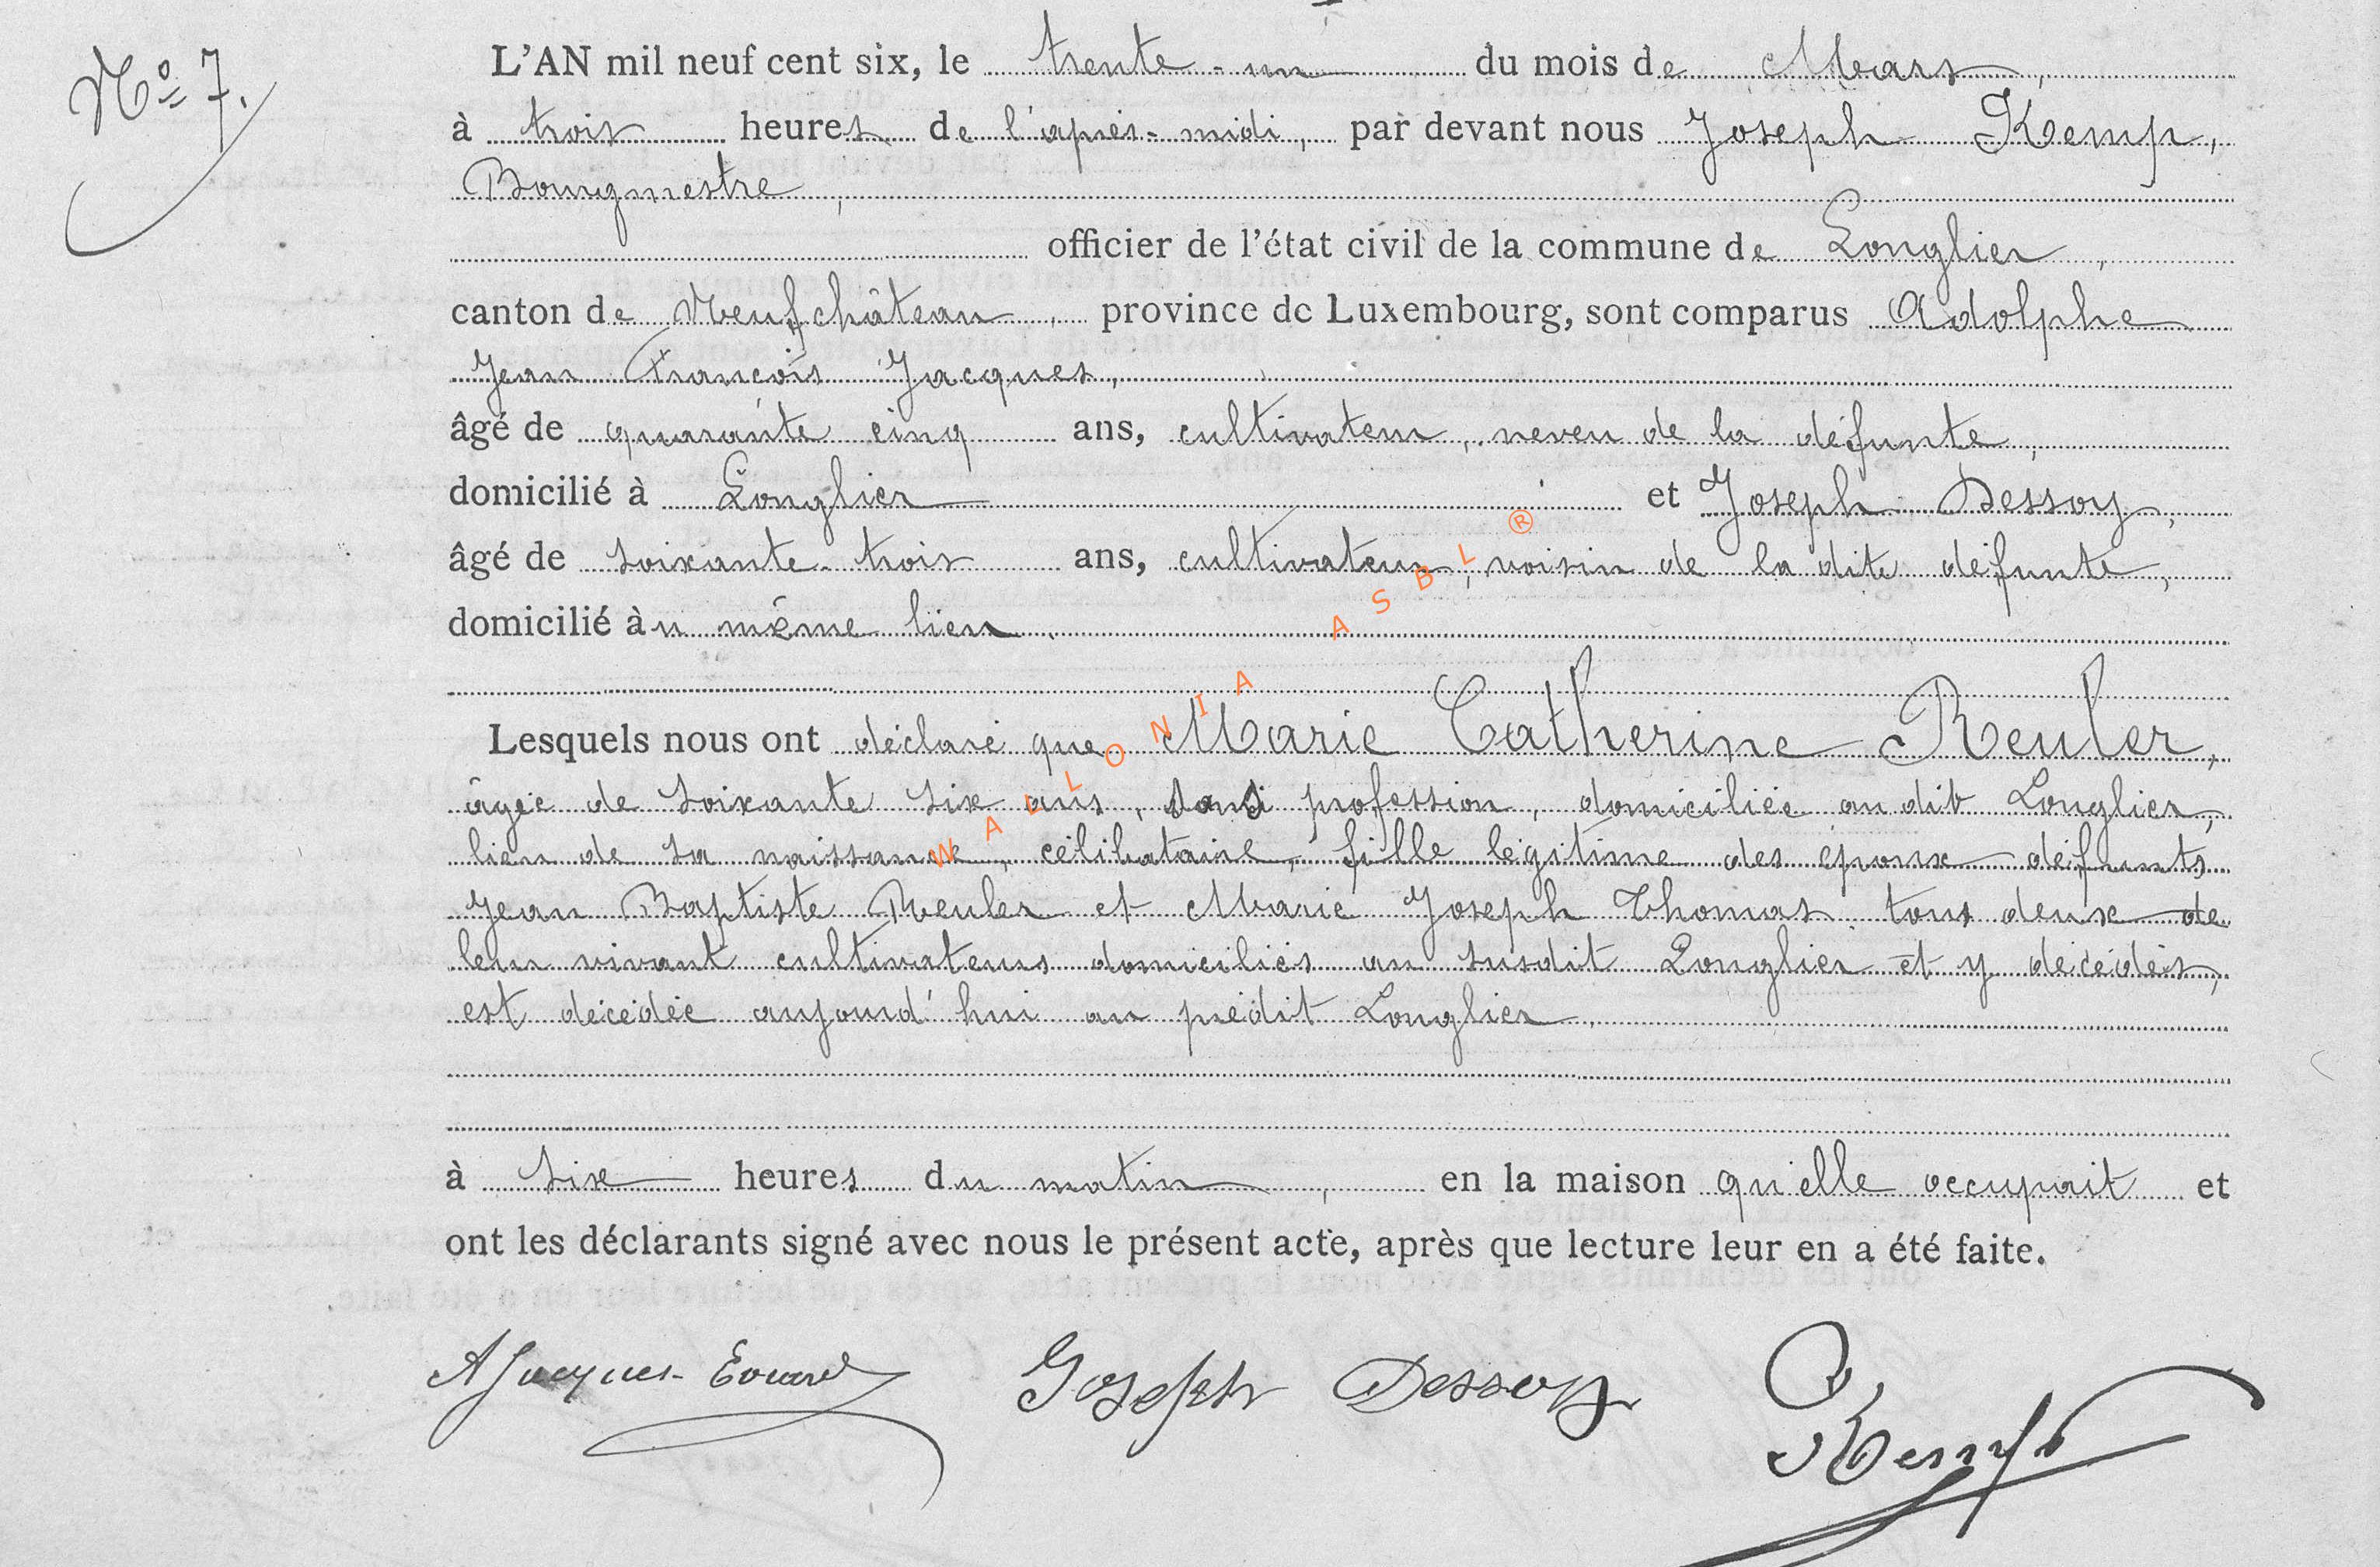 N° 7.
L'AN mil neuf cent six, le trente-un du mois de Mars,
à trois heures de l'après-midi, par devant nous Joseph Kemp,
Bourgmestre,
officier de l'état civil de la commune de Longlier,
canton de Neufchâteau, province de Luxembourg, sont comparus Adolphe
Jean François Jacques,
âgé de quarante cinq ans, cultivateur, neveu de la défunte,
domicilié à Longlier et Joseph Dessoy,
âgé de soixante-trois ans, cultivateur, voisin de la dite défunte,
domicilié àu même lieu.
Lesquels nous ont déclaré que Marie Catherine Reuler,
âgée de soixante six ans, sans profession, domiciliée au dit Longlier,
lieu de sa naissance, célibataire, fille légitime des époux défunts
Jean Baptiste Reuler et Marie Joseph Thomas tous deux de
leur vivant cultivateurs domiciliés au susdit Longlier et y décédés,
est décédée aujourd'hui au prédit Longlier.
à six heures du matin, en la maison qu'elle occupait et
ont les déclarants signé avec nous le présent acte, après que lecture leur en a été faite.
AJacques- Joseph Dessoy Kemp
WALLONIA ASBL ®